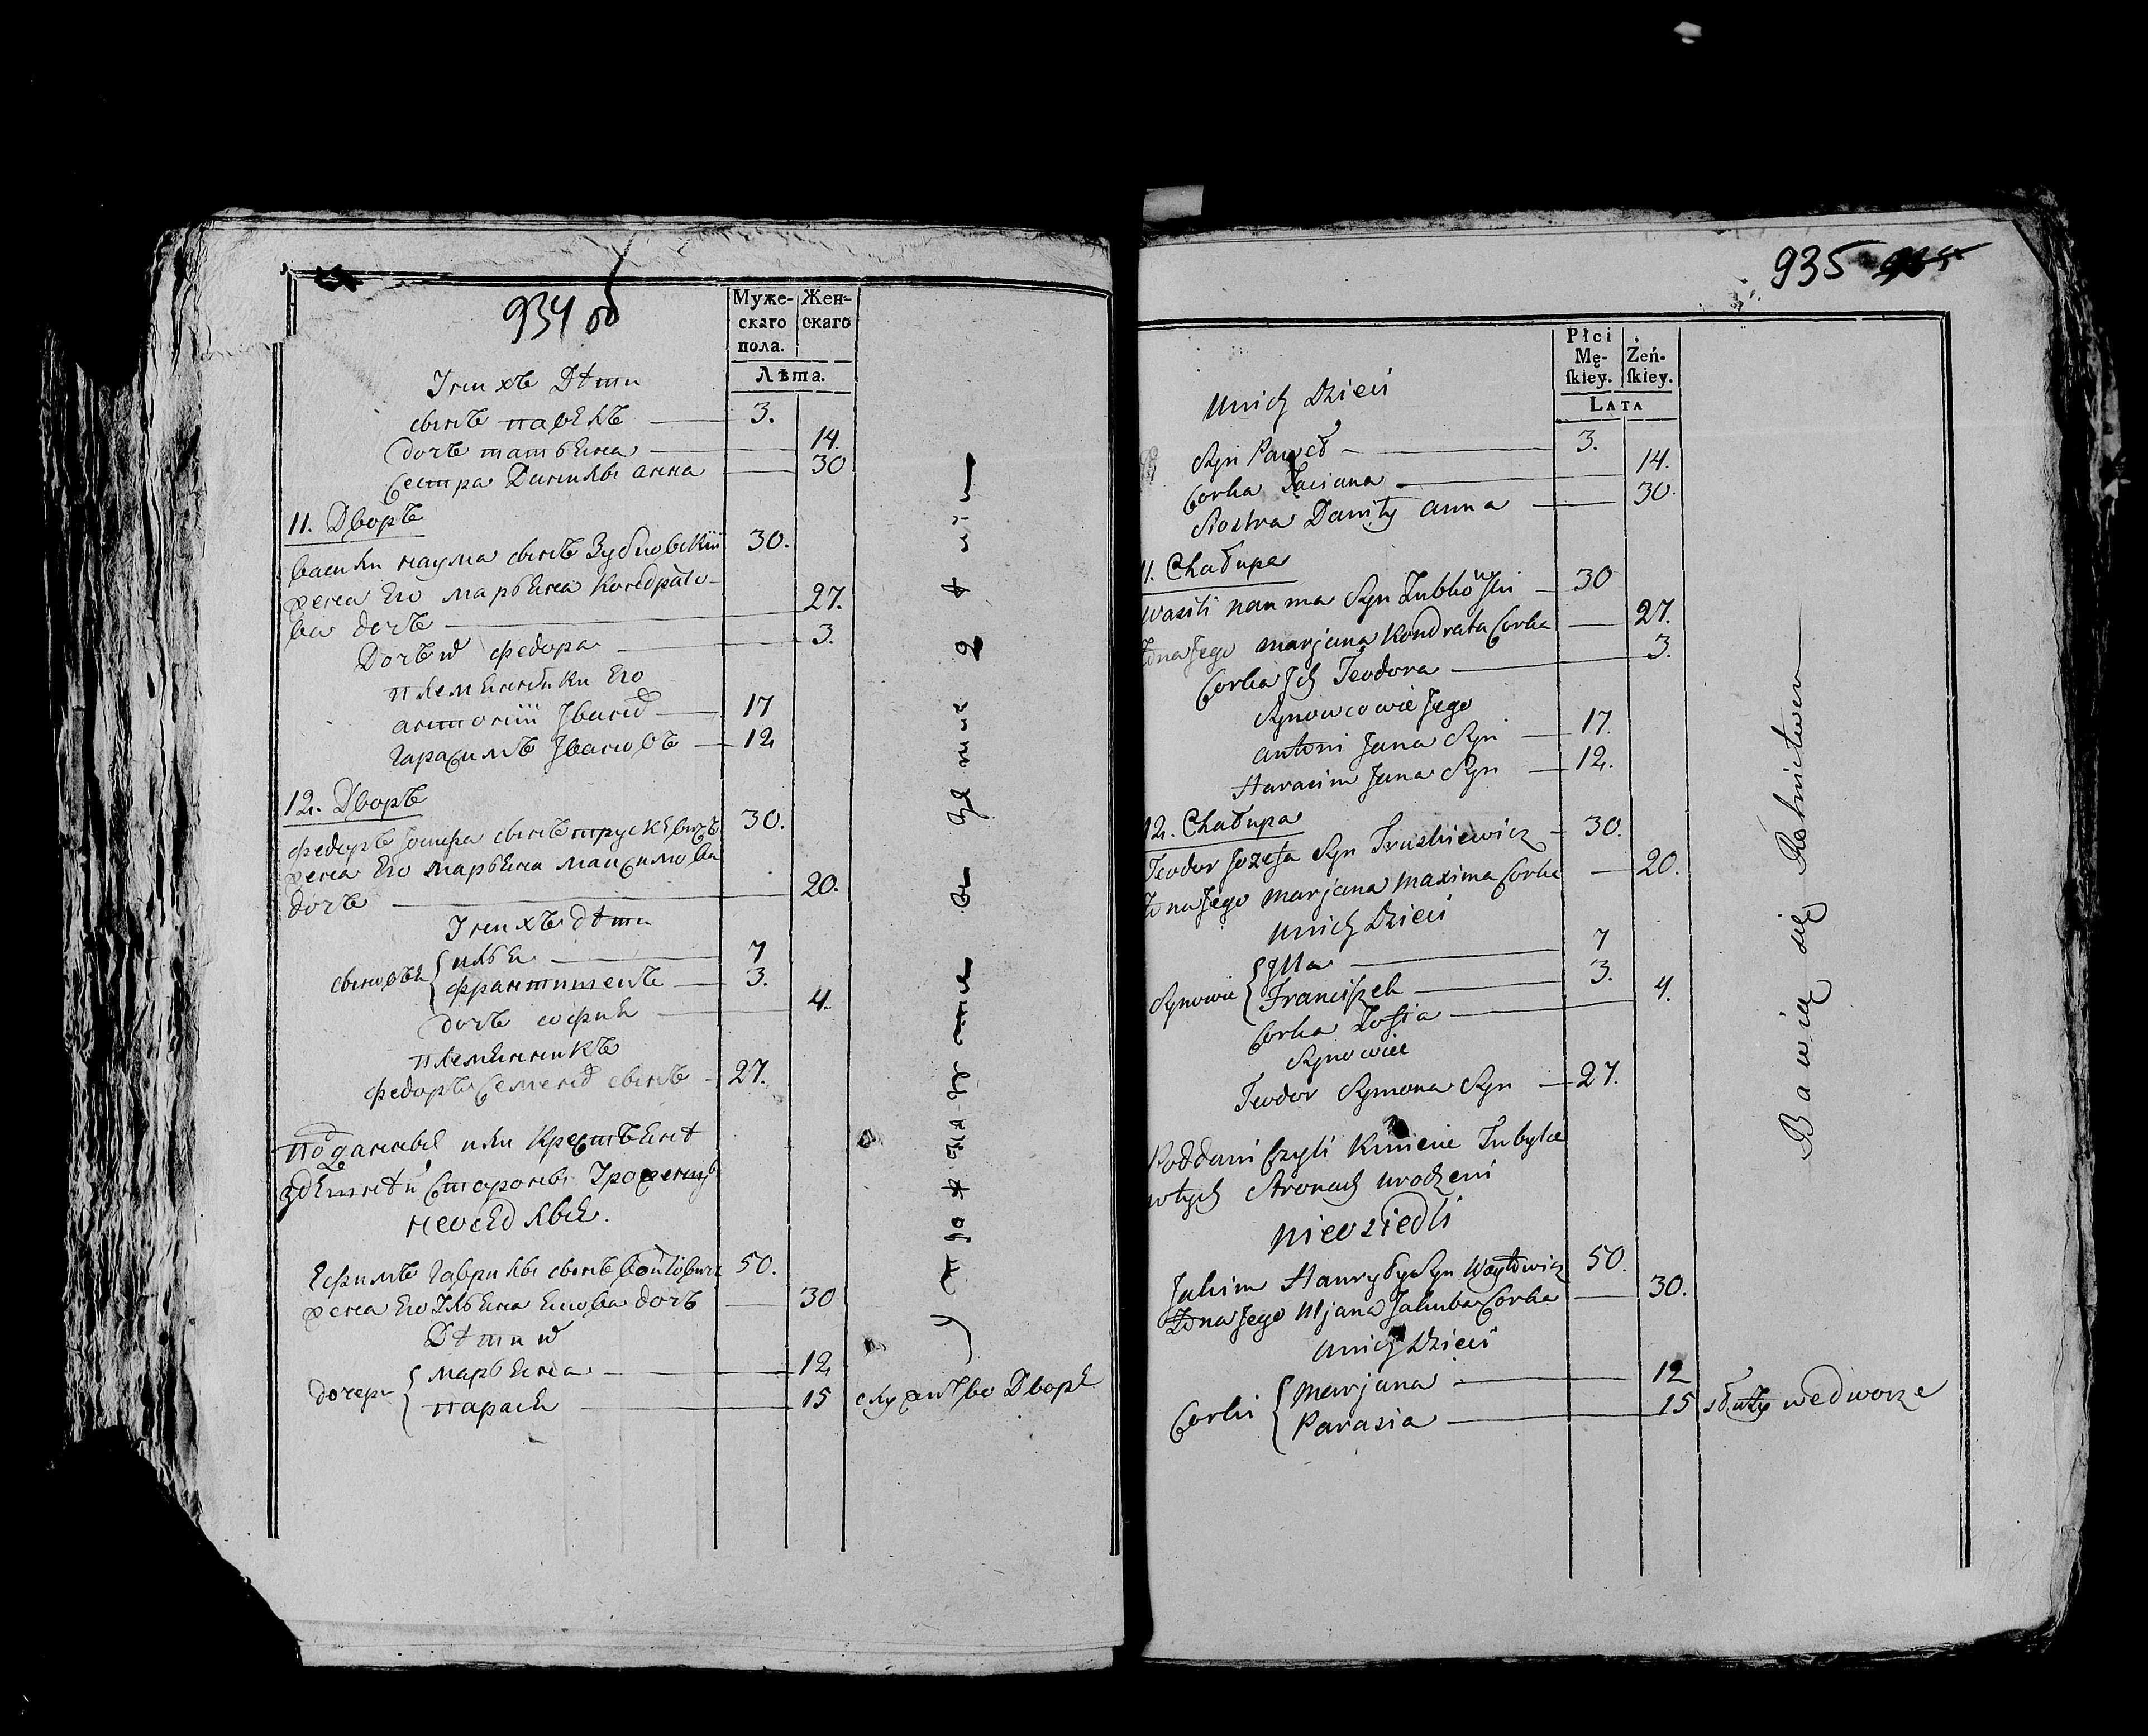 934 об
Муже-
скаго
пола.
Жен-
скаго
Лѣта.
У нихъ Дѣти
сынъ павелъ 3.
дочь татьяна 14.
Сестра Данилы анна 30
11. Дворъ
василй наума сынъ Зубковскій 30.
жена Его марьяна Кондрато-
ва дочь 27.
Дочь их федора 3.
племянники Его
антоній Иванов 17
Гарасимъ Ивановъ 12
12. Дворъ
федоръ Іозифа сынъ трускевичъ 30.
жена Его марьяна максимова
дочь 20.
У нихъ дѣти
сыновья { илья 7
францишекъ 3.
дочь софия 4.
племянникъ
федоръ Семенов сынъ 27.
подданные или Крестьяне
здешнеи Стороны Уроженцы
неоседлые.
Яфимъ Гаврилы сынъ войтович 50.
жена Его Ульяна дочь 30
Дѣти их
дочери { марьяна 12
парася 15 служит во Дворе
упражняются в земледелии
935
Płci
Mę-
ſkiey.
Żeń-
ſkiey.
LATA
U nich Dzieci
Syn Paweł 3.
Corka Taciana 14.
Siostra Daniły anna 30.
11. Chałupa
Wasili nauma Syn Zubkowski 30
Żona Jego marjana Kondrata Corka 27.
Corka Jch Teodora 3.
Synowcowie Jego
antoni Jana Syn 17.
Harasim Jana Syn 12.
12. Chałupa
Teodor Jozefa Syn Truskiewicz 30.
Żona Jego marjana maxima Corka 20.
U nich Dzieci
Synowie { Jlla 7
Franciszek 3.
Corka Zofia 4.
Synowiec
Teodor Symona Syn 27.
Poddani Czyli Kmiecie Tubylce
w tych Stronach urodzeni
nieosiedli
Jakim Hauryły Syn Woytowicz 50.
Żona Jego Uljana Jakuba Corka 30.
U nich Dzieci
Corki { Marjana 12
Parasia 15 służy we dworze
Bawią się Rolnictwem